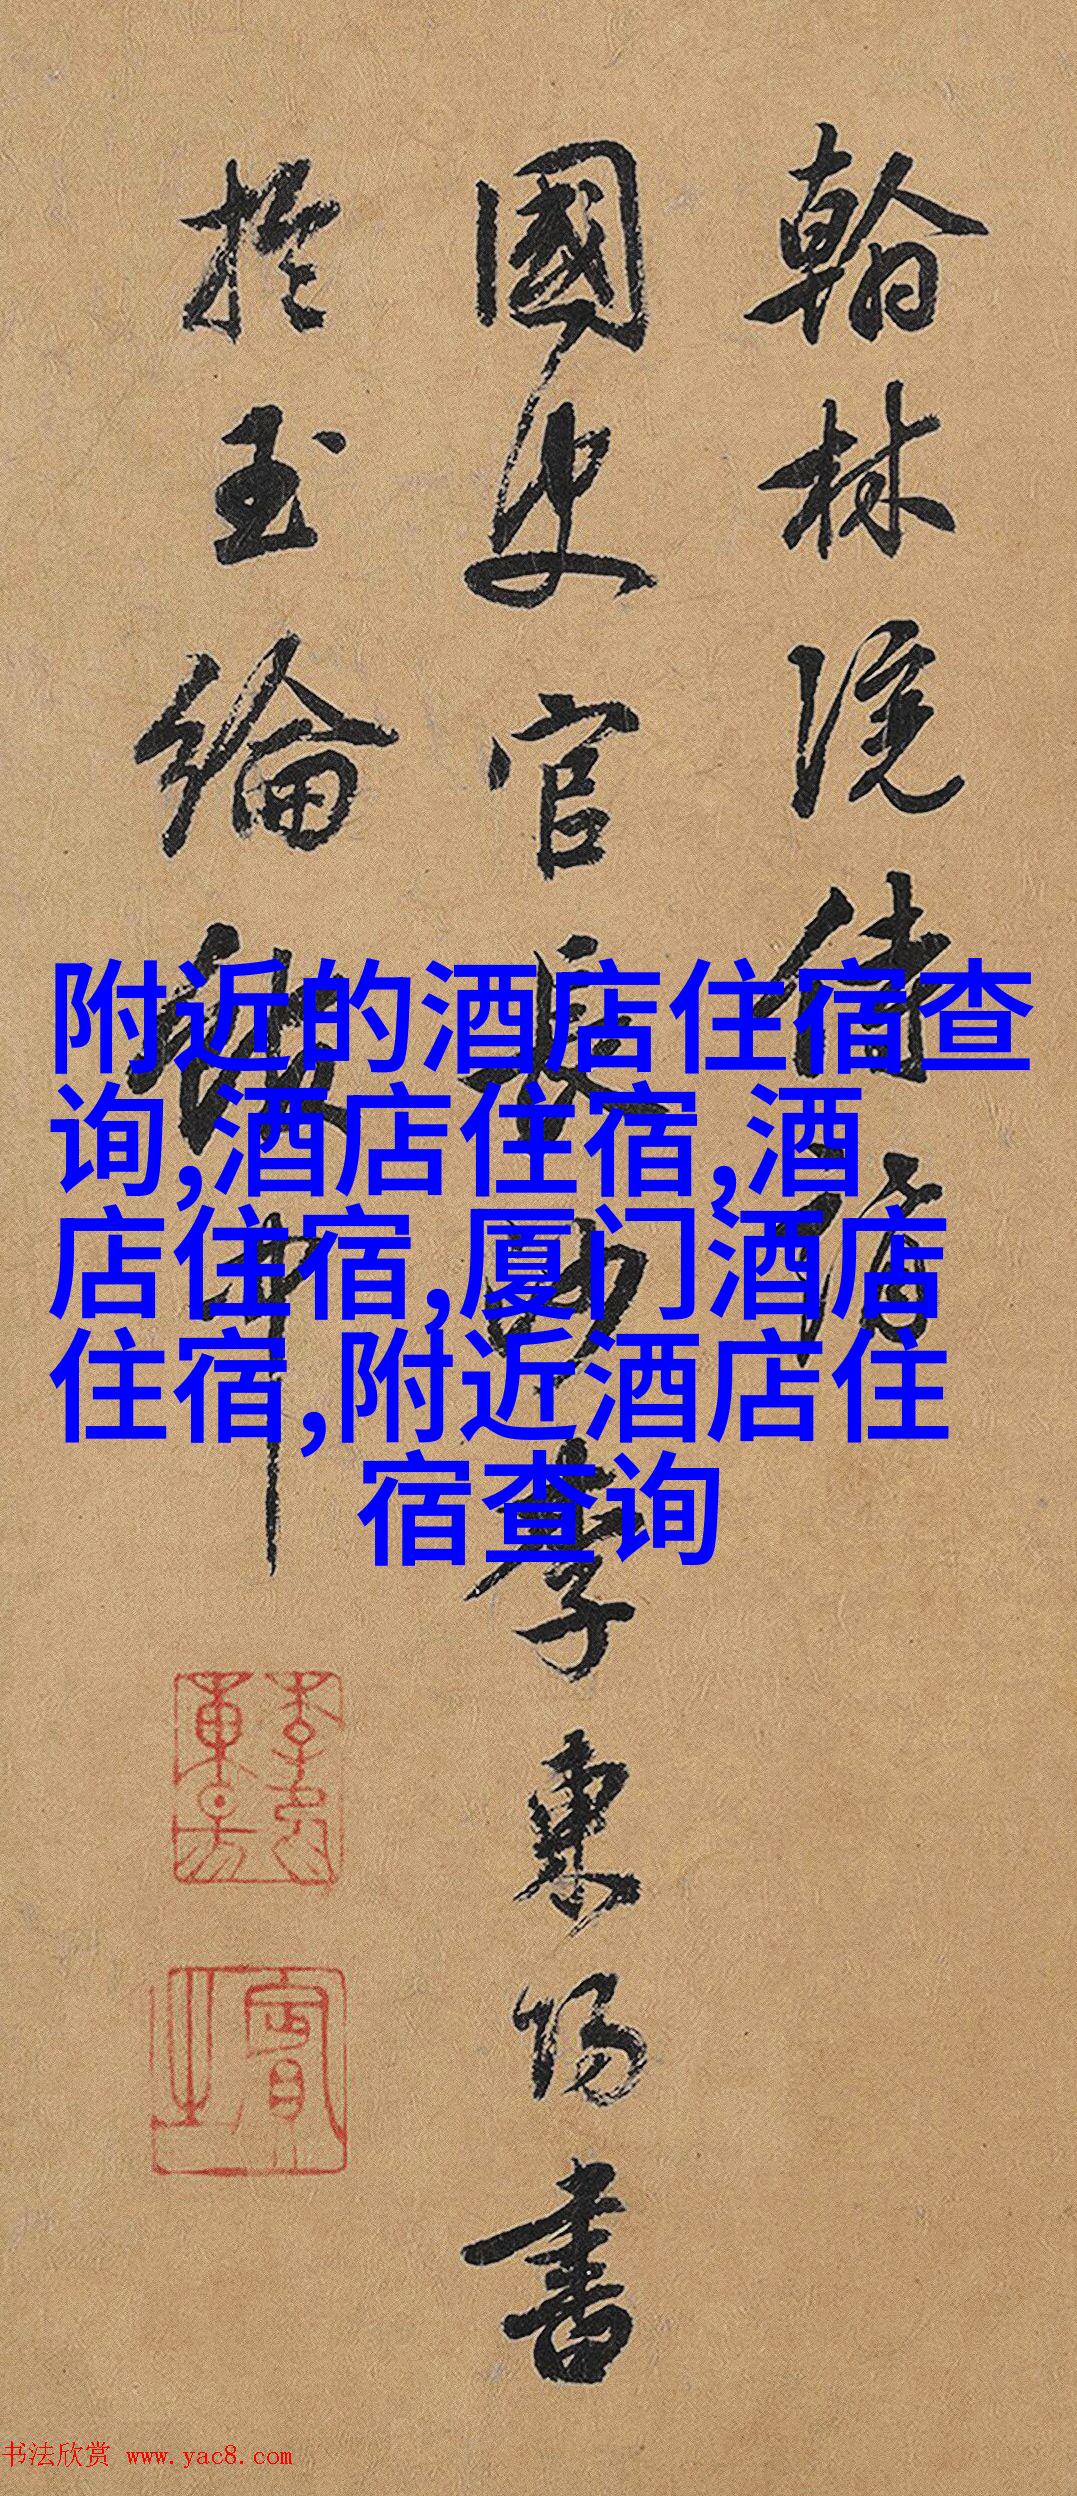 翰林院侍讀
國史官長沙李東陽書
於玉綸
中
附近的酒店住宿查
询,酒店住宿,酒
店住宿,厦门酒店
住宿,附近酒店住
宿查询
书法欣赏 www.yac8.com